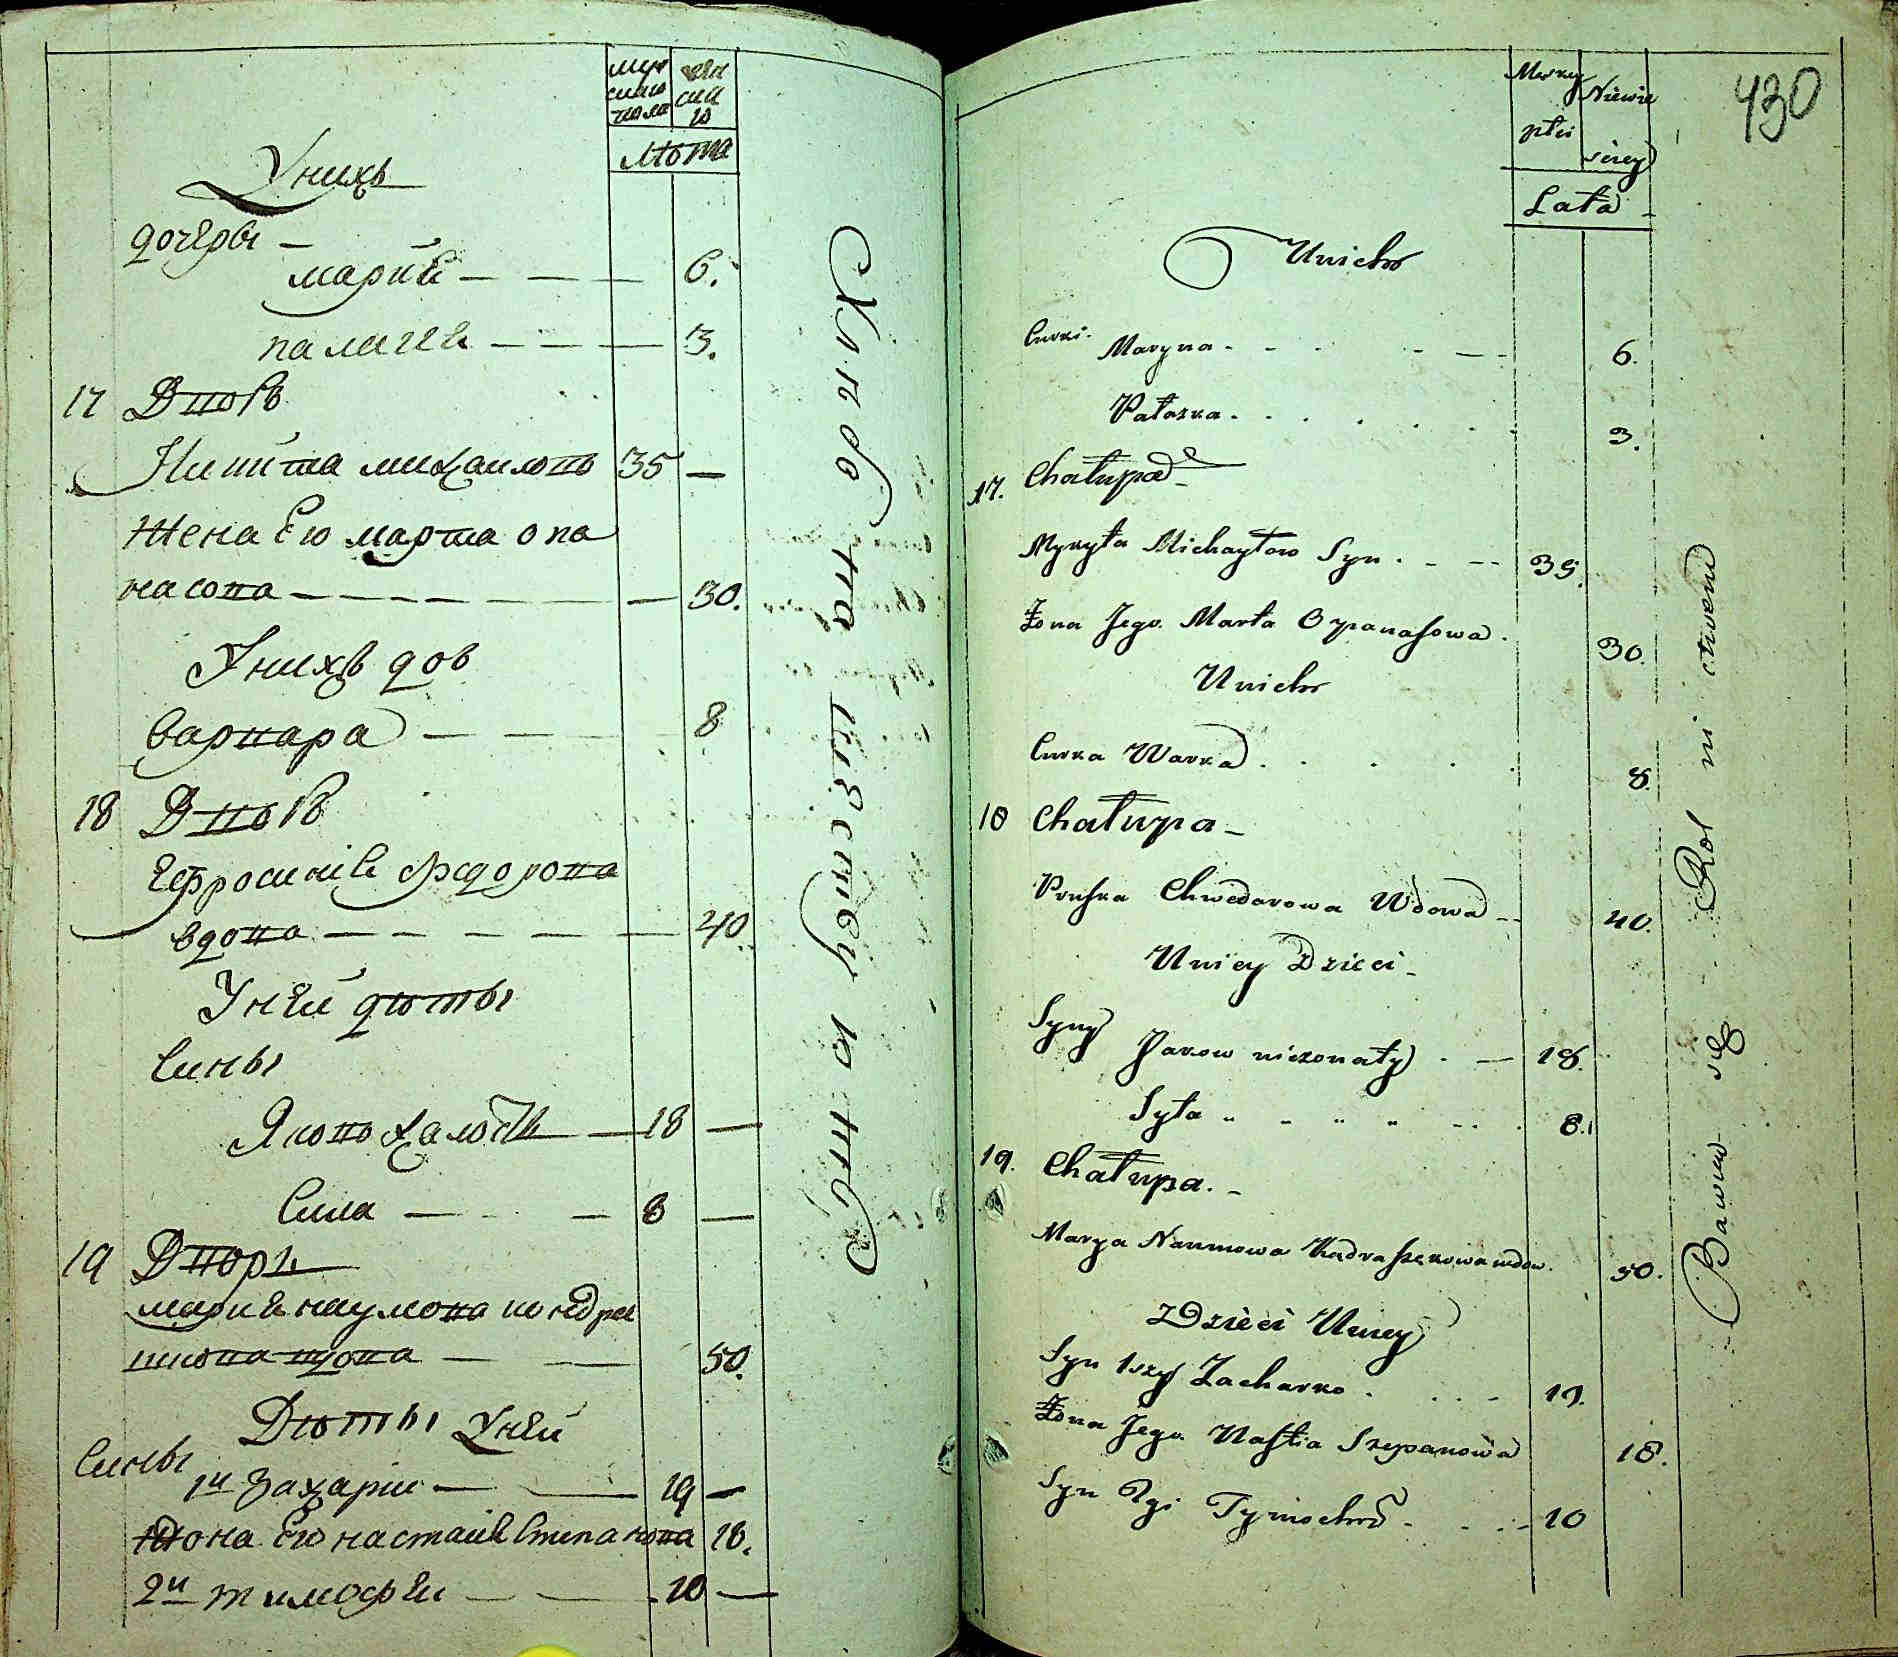 мужескаго пола
женскаго
лѣта
У нихъ
дочеры —
мария — — — 6.
палагея — — — 3.
17 Дворъ
Никита михаиловъ 35 —
жена Его марта опа
насова — — — — — — 30.
У нихъ доч
варвара — — — 8
18 Дворъ
Ефросиния Федорова
вдова — — — — — 40
У ней дѣты
сины
Яковъ халостъ — 18 —
Сила — — — 8 —
19 Дворъ
мария наумова кондра
шкова вдова — — — 50.
Дѣты У ней
сины
1й Захарии — — 19 —
жона Его настасия степанова 18.
2й тимофеи — — 10 —
Хлѣбо
па
шеству
ютъ
430
Męzkiey płci
Niewiesciey
Lata
Unich
Curki.
Maryna 6.
Pałazka 3.
17. Chałupa
Mykyta Michayłow Syn 35.
Żona Jego Marta Opanasowa 30.
Unich
Curka Warka 8.
18 Chałupa
Pruska Chwedorowa Wdowa 40.
Uniey Dzieci
Syny
Jakow nieżonaty 18.
Syła 8.
19. Chałupa.
Marya Naumowa Kudraszkowa wdow. 50.
Dzieci Uniey
Syn 1szy Zacharko 19.
Żona Jego Nastia Szepanowa 18.
Syn 2gi Tymochw 10
Bawią się Rolnictwem